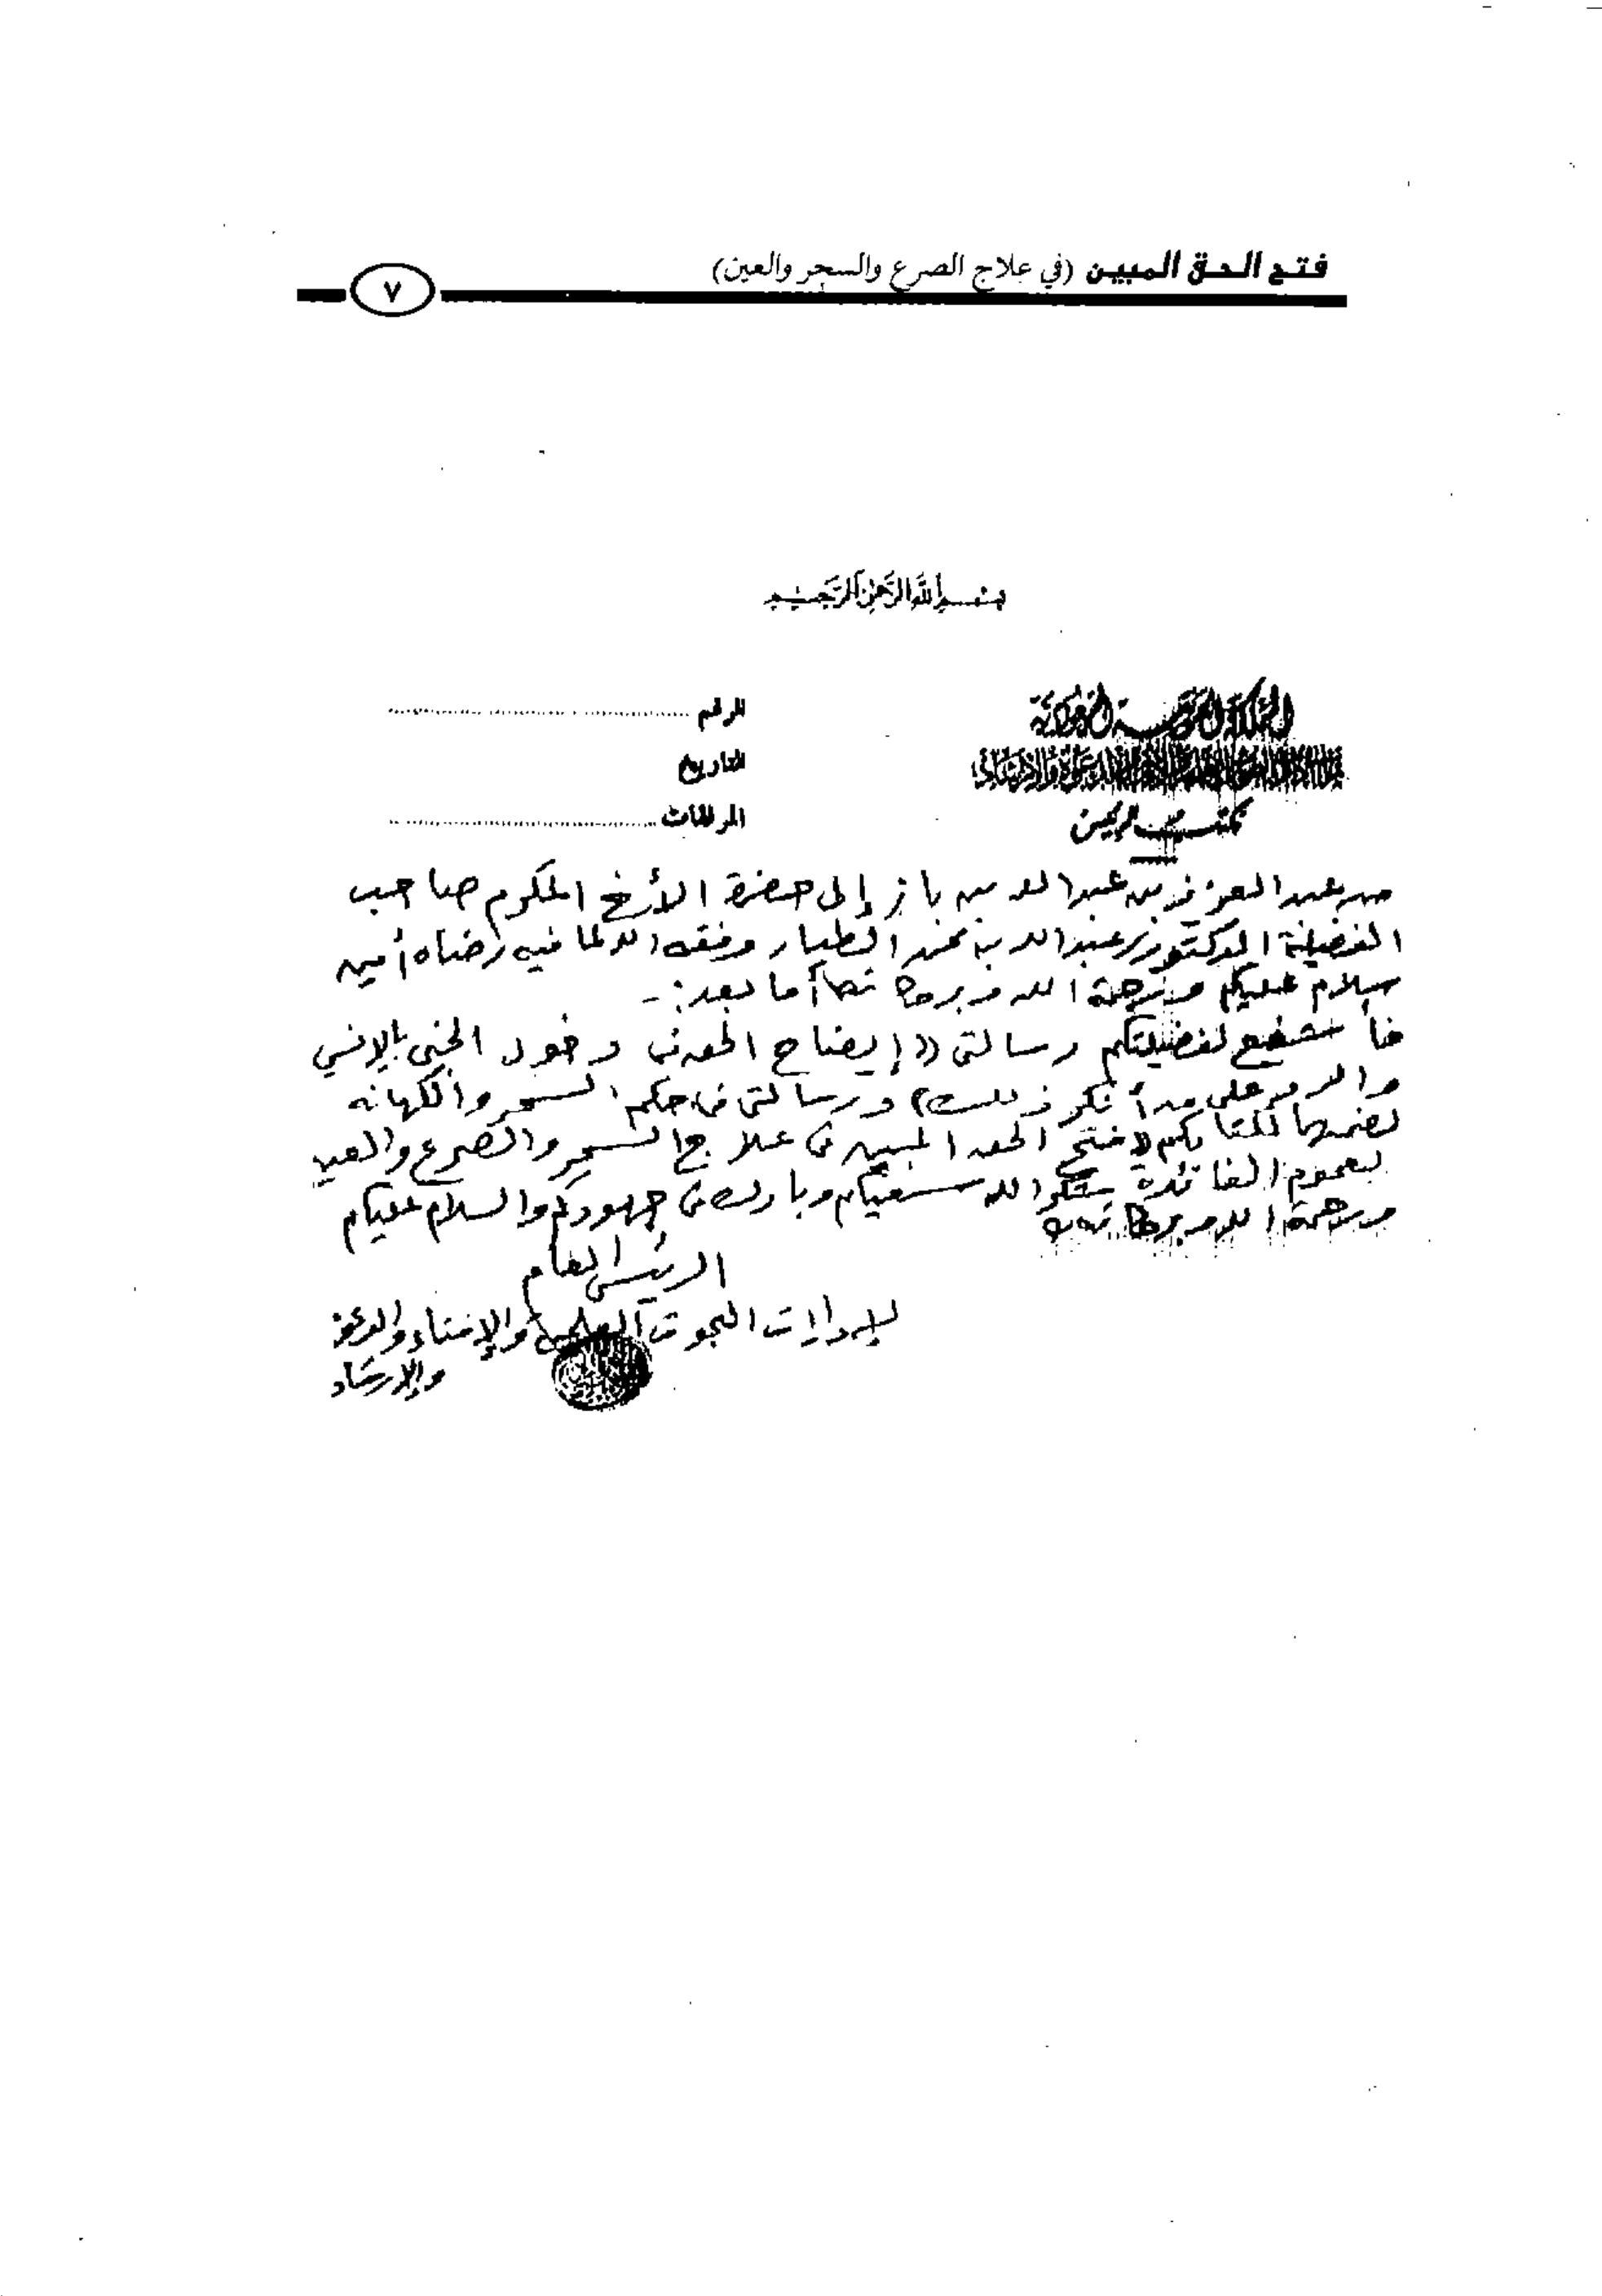 فتح الحق المبين (في علاج الصرع والسحر والعين)
٧
بسم الله الرحمن الرحيم
المملكة العربية السعودية
مكتب الرئيس
الرقم
التاريخ
المرفقات
من عبد العزيز بن عبد الله بن باز إلى حضرة الأخ المكرم صاحب
الفضيلة الدكتور عبد الله بن محمد الطيار وفقه الله لما فيه رضاه أمين
سلام عليكم ورحمة الله وبركاته أما بعد:-
فأ لفضيلتكم رسالتي ((إيضاح الحق في دخول الجني بالإنسي
والرد على من أنكر ذلك)) ورسالتي في حكم السحر والكهانة
لضمهما لكتابكم ((فتح الحق المبين في علاج السحر والصرع والعين
لعموم الفائدة شكر الله سعيكم وبارك في جهودكم والسلام عليكم
ورحمة الله وبركاته
الرئيس العام
لإدارات البحوث العلمية والإفتاء والدعوة
والإرشاد